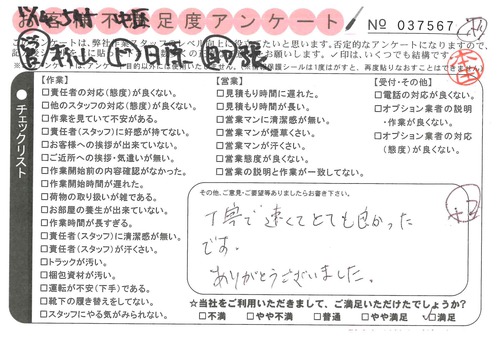 お客様不満足度アンケート
No 037567
【作業】
□責任者の対応(態度)が良くない。
□他のスタッフの対応(態度)が良くない。
□作業を見ていて不安がある。
□責任者(スタッフ)に好感が持てない。
□お客様への挨拶が出来ていない。
□ご近所への挨拶・気遣いが無い。
□作業開始前の内容確認がなかった。
□作業開始時間が遅れた。
□荷物の取り扱いが雑である。
□お部屋の養生が出来ていない。
□作業時間が長すぎる。
□責任者(スタッフ)に清潔感が無い。
□責任者(スタッフ)が汗くさい。
□トラックが汚い。
□梱包資材が汚い。
□運転が不安(下手)である。
□靴下の履き替えをしてない。
□スタッフにやる気がみられない。
【営業】
□見積もり時間に遅れた。
□見積もり時間が長い。
□営業マンに清潔感が無い。
□営業マンが煙草くさい。
□営業マンが汗くさい。
□営業態度が良くない。
□営業の説明と作業が一致してない。
【受付・その他】
□電話の対応が良くない。
□オプション業者の説明
・作業が良くない。
□オプション業者の対応
(態度)が良くない。
チェックリスト
その他、ご意見・ご要望等ありましたらお書き下さい。
丁寧で速くてとても良かった
です。
ありがとうございました。
☆当社をご利用いただきまして、ご満足いただけたでしょうか?
□不満 □やや不満 □普通 □やや満足 ☑満足